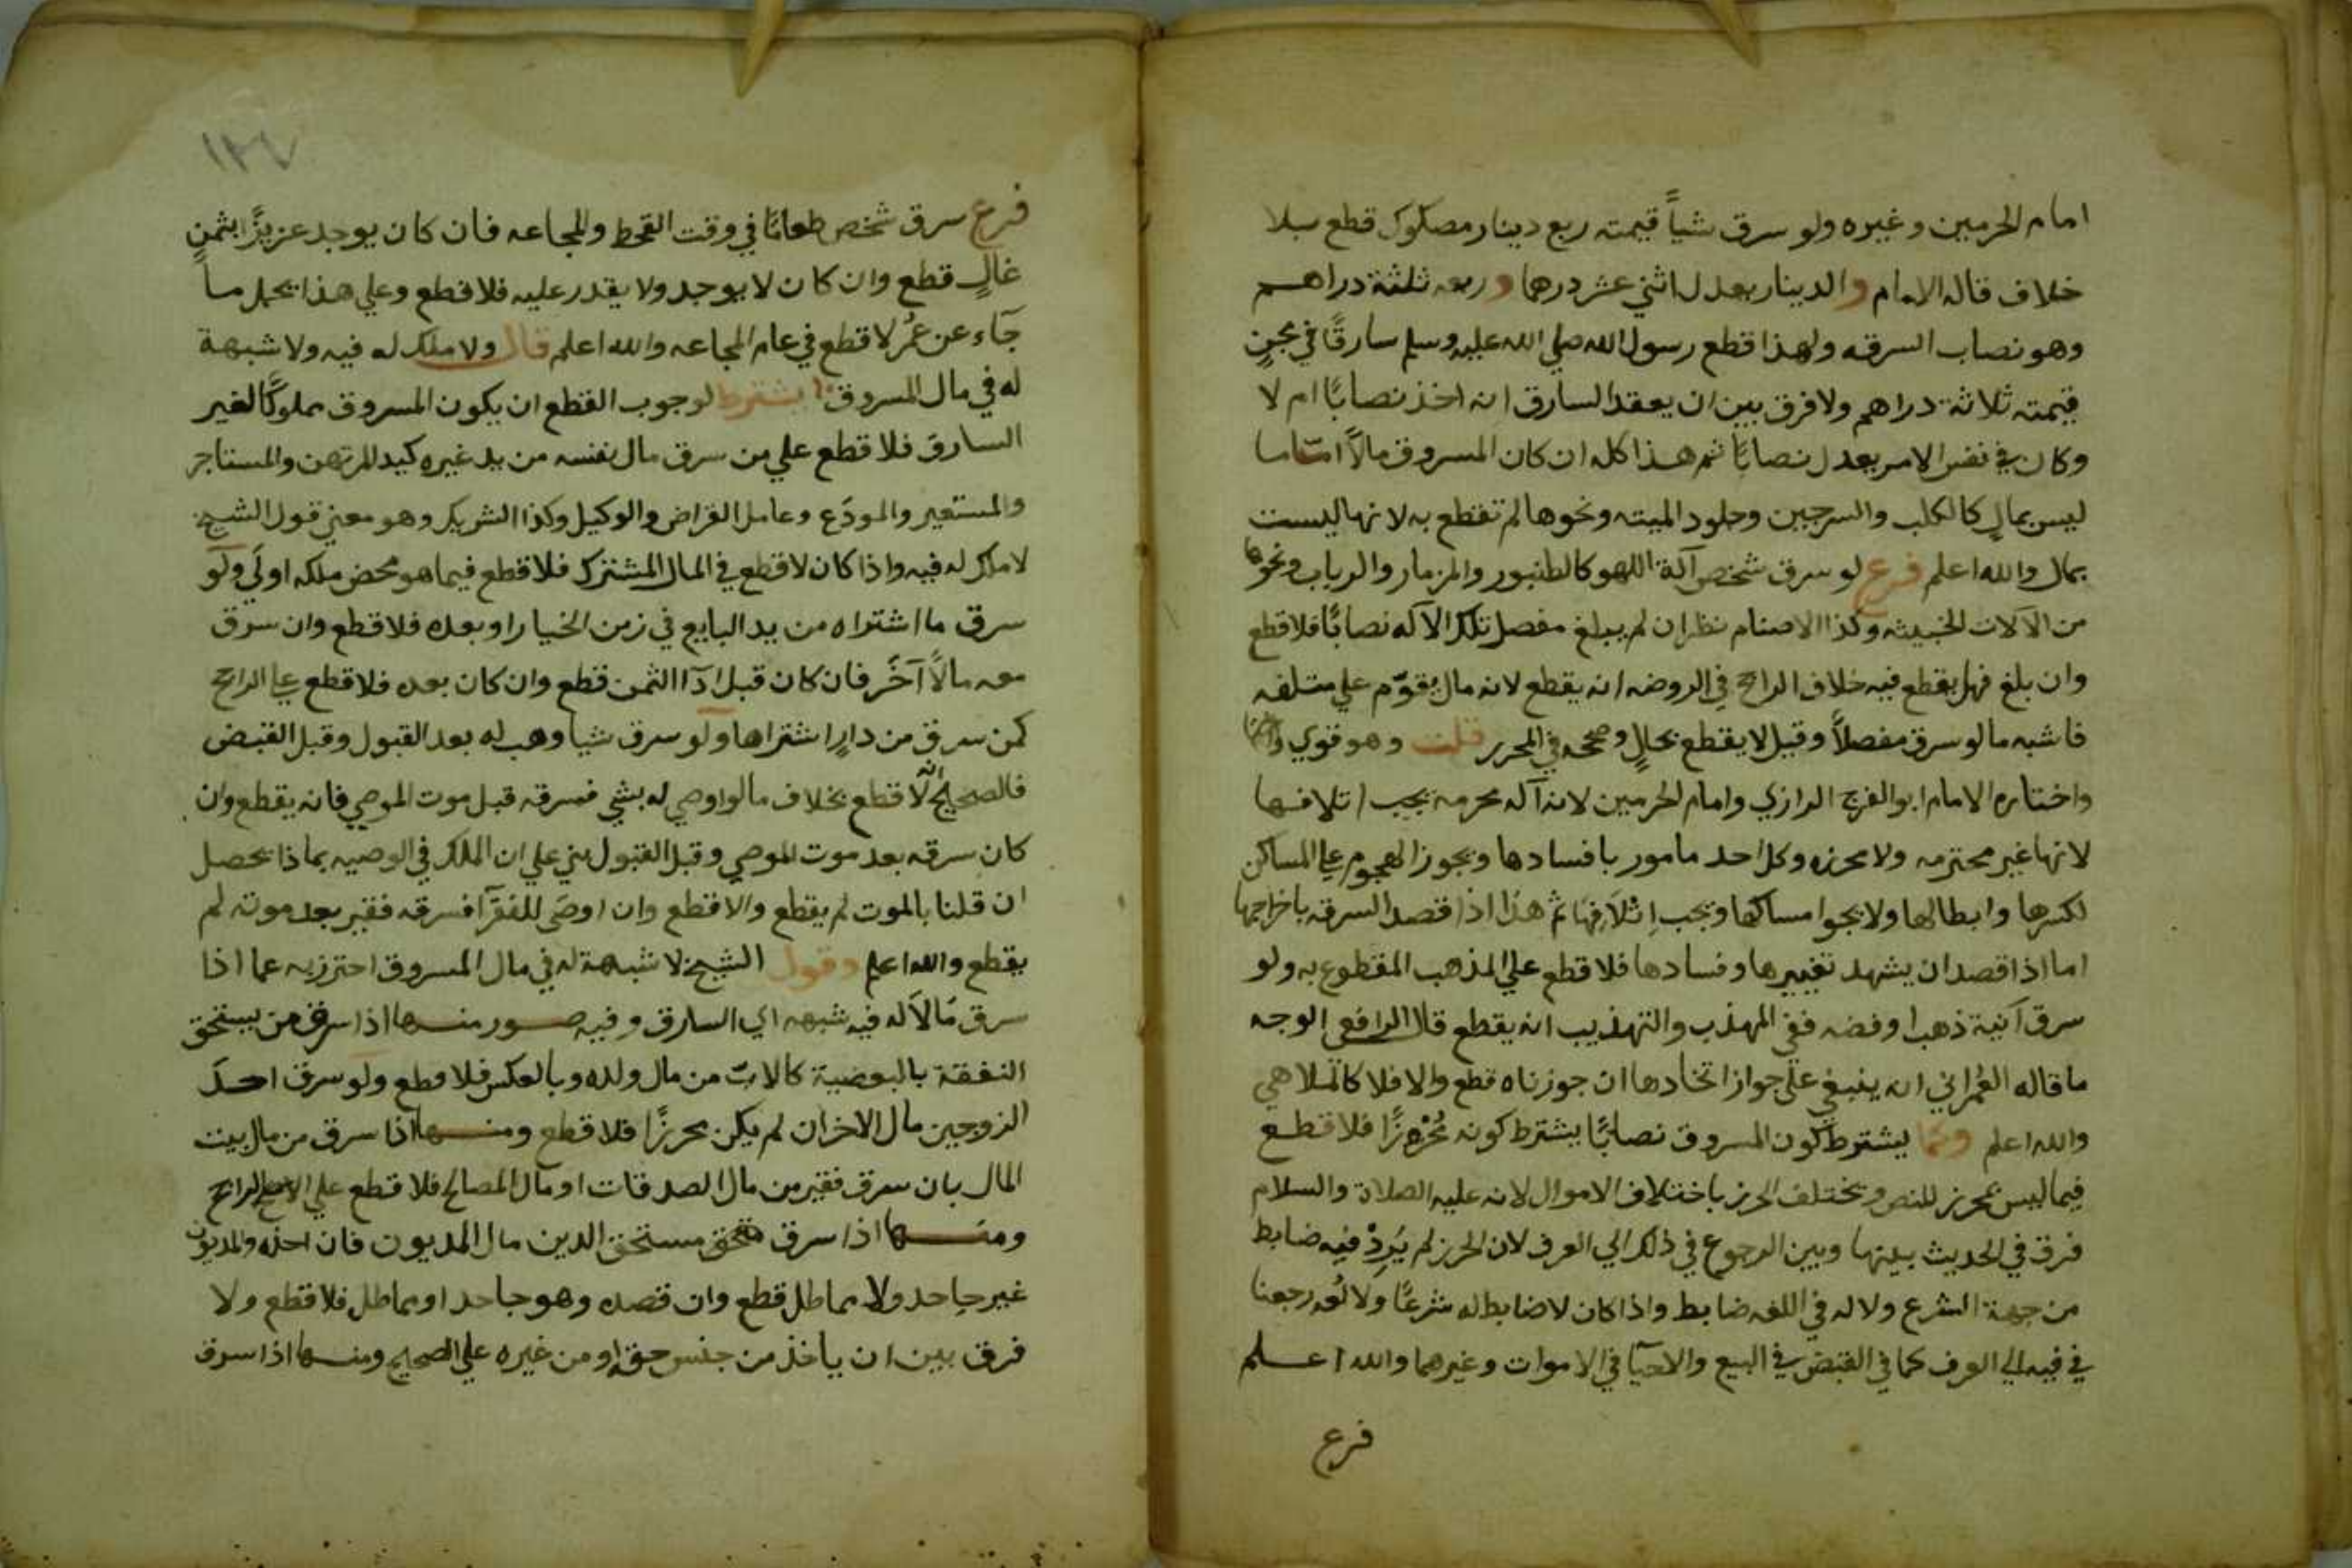 امام الحرمين وغيره ولو سرق شياً قيمته ربع دينار مصكوك قطع بلا
خلاف قاله الامام والدينار يعدل اثني عشر درهما وربعه ثلثة دراهم
وهو نصاب السرقه ولهذا قطع رسول الله صلي الله عليه وسلم سارقًا في مجنٍ
قيمته ثلاثة دراهم ولا فرق بين ان يعقد السارق انه اخذ نصابًا ام لا
وكان في نفس الامر يعدل نصابًا ثم هذا كله ان كان المسروق مالاً اما ما
ليس بمالٍ كالكلب والسرجين وجلود الميته ونحوها لم تقطع به لانها ليست
بمال والله اعلم فرع لو سرق شخص آلة اللهو كالطنبور والمزمار والرباب ونحوها
من الآلات الخبيثه وكذا الاصنام نظر ان لم يبلغ مفصل تلك الآله نصابًا فلا قطع
وان بلغ فهل يقطع فيه خلاف الراجح في الروضه انه يقطع لانه مال يقوّم علي متلفه
فاشبه مالو سرق مفصلاً وقيل لا يقطع بحالٍ وصححه في المحرر قلت وهو قوي
واختاره الامام ابو الفرج الرازي وامام الحرمين لانه آله محرمه يجب اتلافها
لانها غير محترمه ولا محرزه وكل احد مامور بافسادها ويجوز الهجوم علي المساكن
لكسرها وابطالها ولا يجوا مساكها ويجب اتلافها ثم هذا اذا قصد السرقه باخراجها
اما اذا قصد ان يشهد تغييرها وفسادها فلا قطع علي المذهب المقطوع به ولو
سرق آنية ذهب او فضه ففي المهذب والتهذيب انه يقطع قال الرافعي الوجه
ما قاله العمراني انه ينبغي علي جواز اتخادها ان جوزناه قطع والا فلا كالملاهي
والله اعلم وكما يشترط كون المسروق نصابًا يشترط كونه مُحْرزًا فلا قطع
فيما ليس بمحرز للنص ويختلف الحرز باختلاف الاموال لانه عليه الصلاة والسلام
فرق في الحديث بينها وبين الرجوع في ذلك الي العرف لان الحرز لم يَرِدْ فيه ضابط
من جهة الشرع ولا له في اللغه ضابط واذا كان لا ضابط له شرعًا ولا لغه رجعنا
في فيه الي العرف كما في القبض في البيع والاحيآ في الاموات وغيرهما والله اعلم
فرع
١٢٧
فرع سرق شخص طعامًا في وقت القحط والمجاعه فان كان يوجد عزيزًا بثمنٍ
غالٍ قطع وان كان لا يوجد ولا يقدر عليه فلا قطع وعلي هذا يحمل ما
جآء عن عمُر لا قطع في عام المجاعه والله اعلم قال ولا ملك له فيه ولا شبهة
له في مال المسروق يشترط لوجوب القطع ان يكون المسروق مملوكًا لغير
السارق فلا قطع علي من سرق مال نفسه من يد غيره كيد المرتهن والمستاجر
والمستعير والمودَع وعامل القراض والوكيل وكذا الشريك وهو معني قول الشيخ
لا ملك له فيه واذا كان لا قطع في المال المشترك فلا قطع فيما هو محض ملكه اولَي ولو
سرق ما اشتراه من يد البايع في زمن الخيار او بعده فلا قطع وان سرق
معه مالاً آخَر فان كان قبل ادآ الثمن قطع وان كان بعده فلا قطع علي الراجح
كمن سرق من دارٍ اشتراها ولو سرق شيا وهب له بعد القبول وقبل القبض
فالصحيح انه لا قطع بخلاف مالو اوصي له بشي فسرقه قبل موت الموصي فانه يقطع وان
كان سرقه بعد موت الموصي وقبل القبول بني علي ان الملك في الوصيه بماذا يحصل
ان قلنا بالموت لم يقطع والا قطع وان اوصَي للفقرآ فسرقه فقير بعد موته لم
يقطع والله اعلم وقول الشيخ لا شبهة له في مال المسروق احترز به عما اذا
سرق مالاً له فيه شبهه اي السارق وفيه صور منها اذا سرق من يستحق
النفقة بالبعضية كالاب من مال ولده وبالعكس فلا قطع ولو سرق احد
الزوجين مال الاخر ان لم يكن محرزًا فلا قطع ومنها اذا سرق من مال بيت
المال بان سرق فقير من مال الصدقات او مال المصالح فلا قطع علي الراجح
ومنها اذا سرق مستحق الدين مال المديون فان اخذه والمديون
غير جاحد ولا مماطل قطع وان قصده وهو جاحد او مماطل فلا قطع ولا
فرق بين ان ياخذ من جنس حقه او من غيره علي الصحيح ومنها اذا سرق